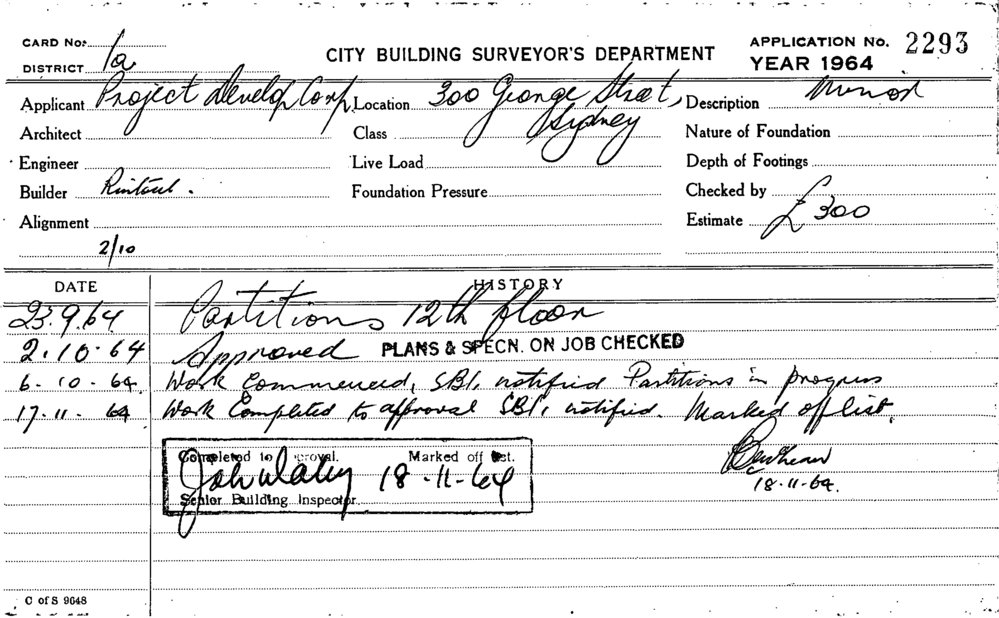 CARD No: 1a
CITY BUILDING SURVEYOR'S DEPARTMENT
APPLICATION No. 2293
DISTRICT
YEAR 1964
Applicant Project Develop Corp. Location 300 George Street, Sydney Description Minor
Architect Class Nature of Foundation
Engineer Live Load Depth of Footings
Builder Rintoul. Foundation Pressure Checked by
Alignment Estimate £300
2/10
DATE HISTORY
23.9.64 Partitions 12th floor
2.10.64 Approved PLANS & SPECN. ON JOB CHECKED
6-10-64. Work Commenced, SBI. notified Partitions in progress
17-11-64 Work Completed to approval SBI. notified. Marked off list.
Completed to approval. Marked off list.
18-11-64
Senior Building Inspector
18-11-64.
C of S 9648